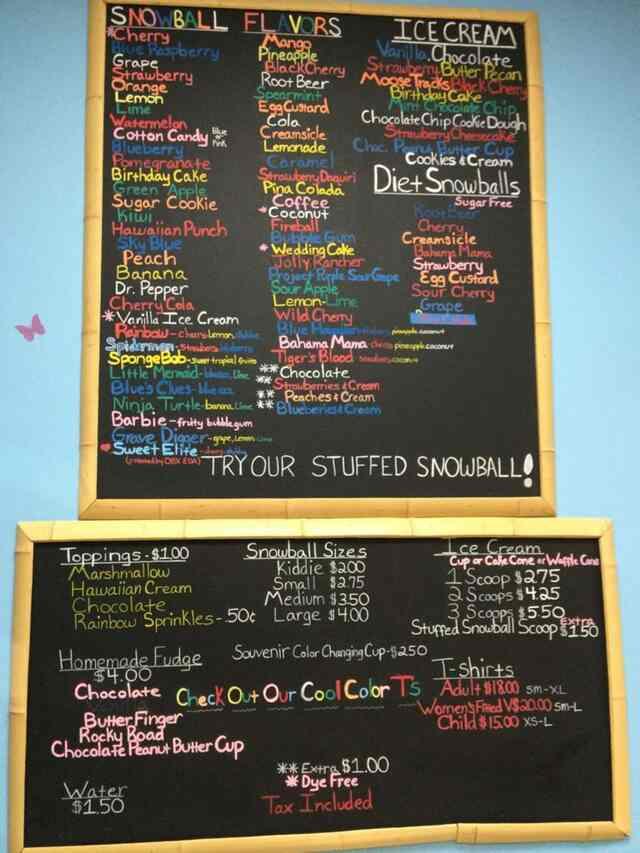 SNOWBALL FLAVORS
*Cherry
Blue Raspberry
Grape
Strawberry
Orange
Lemon
Lime
Watermelon
Cotton Candy blue or pink
Blueberry
Pomegranate
Birthday Cake
Green Apple
Sugar Cookie
Kiwi
Hawaiian Punch
Sky Blue
Peach
Banana
Dr. Pepper
Cherry Cola
*Vanilla Ice Cream
Rainbow - cherry, lemon,
Spiderman -
SpongeBob - sweet tropical fruits
Little Mermaid - Lime
Blue's Clues -
Ninja Turtle - banana, Lime
Barbie - fruity bubblegum
Grave Digger - grape, Lemon, Lime
Sweet Elite -
Mango
Pineapple
Black Cherry
Root Beer
Spearmint
Egg Custard
Cola
Creamsicle
Lemonade
Caramel
Strawberry Daquiri
Pina Colada
Coffee
*Coconut
Fireball
Bubble Gum
*Wedding Cake
Jolly Rancher
Project Purple Sour Grape
Sour Apple
Lemon-Lime
Wild Cherry
Blue Hawaiian - pineapple, coconut
Bahama Mama - cherry, pineapple, coconut
Tiger's Blood - strawberry, coconut
**Chocolate
**Strawberries & Cream
**Peaches & Cream
**Blueberries & Cream
ICE CREAM
Vanilla, Chocolate
Strawberry, Butter Pecan
Moose Tracks, Black Cherry
Birthday Cake
Mint Chocolate Chip
Chocolate Chip Cookie Dough
Strawberry Cheesecake
Choc. Peanut Butter Cup
Cookies & Cream
Diet Snowballs
Sugar Free
Root Beer
Cherry
Creamsicle
Bahama Mama
Strawberry
Egg Custard
Sour Cherry
Grape
TRY OUR STUFFED SNOWBALL!
Toppings - $1.00
Marshmallow
Hawaiian Cream
Chocolate
Rainbow Sprinkles - .50¢
Snowball Sizes
Kiddie $2.00
Small $2.75
Medium $3.50
Large $4.00
Ice Cream
Cup or Cake Cone or Waffle Cone
1 Scoop $2.75
2 Scoops $4.25
3 Scoops $5.50
Stuffed Snowball Scoop Extra $1.50
Souvenir Color Changing Cup - $2.50
Homemade Fudge
$4.00
Chocolate
Butter Finger
Rocky Road
Chocolate Peanut Butter Cup
Check Out Our Cool Color T's
T-Shirts
Adult $18.00 SM-XL
Women's Fitted V $20.00 SM-L
Child $15.00 XS-L
Water
$1.50
**Extra $1.00
*Dye Free
Tax Included